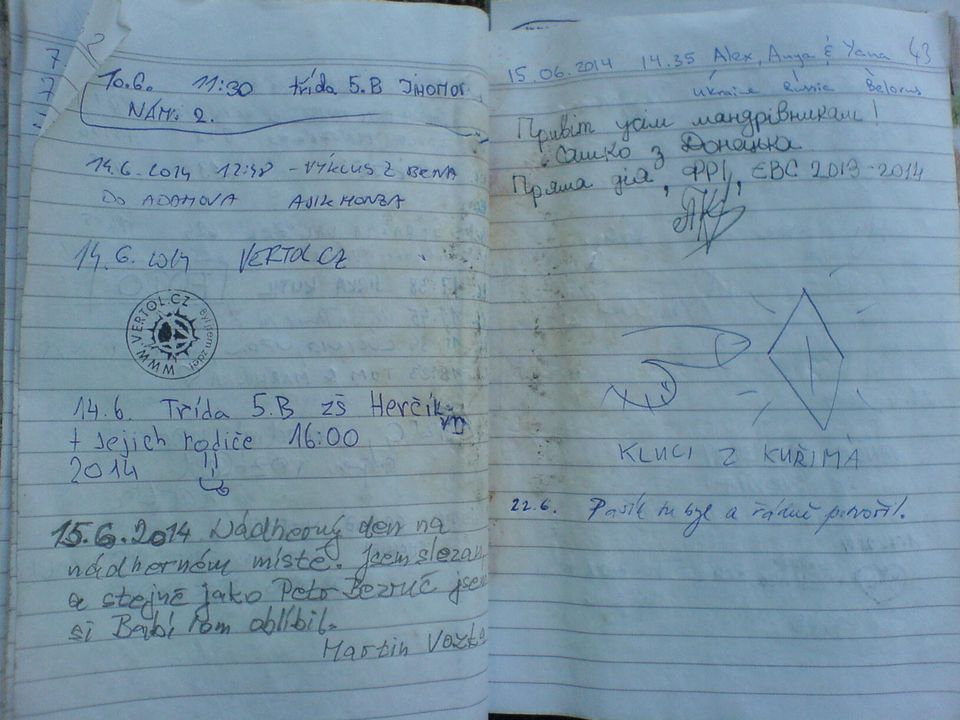 7 2
7
7
10.6. 11:30 třída 5.B
NÁM. 2.
14.6.2014 12:48 - VÝKLUS Z BRNA
DO ADAMOVA
14.6.2014 VERTOL.CZ
WWW.VERTOL.CZ Byl jsem zde!
14.6. Třída 5.B ZŠ Herčík
+ Jejich rodiče 16:00
2014
15.6.2014 Nádherný den na
nádherném místě. Jsem slezan
a stejně jako Petr Bezruč jsem
si Babí lom oblíbil.
Martin
43
15.06.2014 14.35 Alex, Anya & Yana
Ukraine Russia Belorus
Привіт усім мандрівникам!
Сашко з Донецька
Пряма дія, ФРІ, ЄВС 2013-2014
KLUCI Z KUŘIMA
22.6. Pašík tu byl a řádně